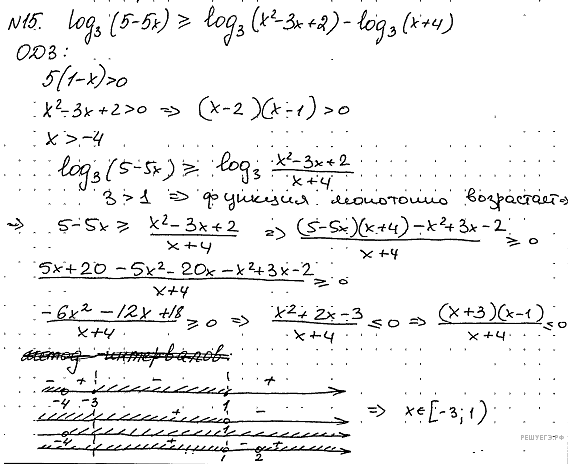 №15. log₃(5-5x) ≥ log₃(x²-3x+2) - log₃(x+4)
ОДЗ:
5(1-x)>0
x²-3x+2>0 ⇒ (x-2)(x-1)>0
x>-4
log₃(5-5x) ≥ log₃ (x²-3x+2)/(x+4)
3>1 ⇒ функция монотонно возрастает ⇒
⇒ 5-5x ≥ (x²-3x+2)/(x+4) ⇒ ((5-5x)(x+4)-x²+3x-2)/(x+4) ≥ 0
(5x+20-5x²-20x-x²+3x-2)/(x+4) ≥ 0
(-6x²-12x+18)/(x+4) ≥ 0 ⇒ (x²+2x-3)/(x+4) ≤ 0 ⇒ ((x+3)(x-1))/(x+4) ≤ 0
метод интервалов.
- + - +
-4 -3 1
+ -
1 ⇒ x∈[-3;1)
-4
+ - +
1 2
РЕШУЕГЭ.РФ